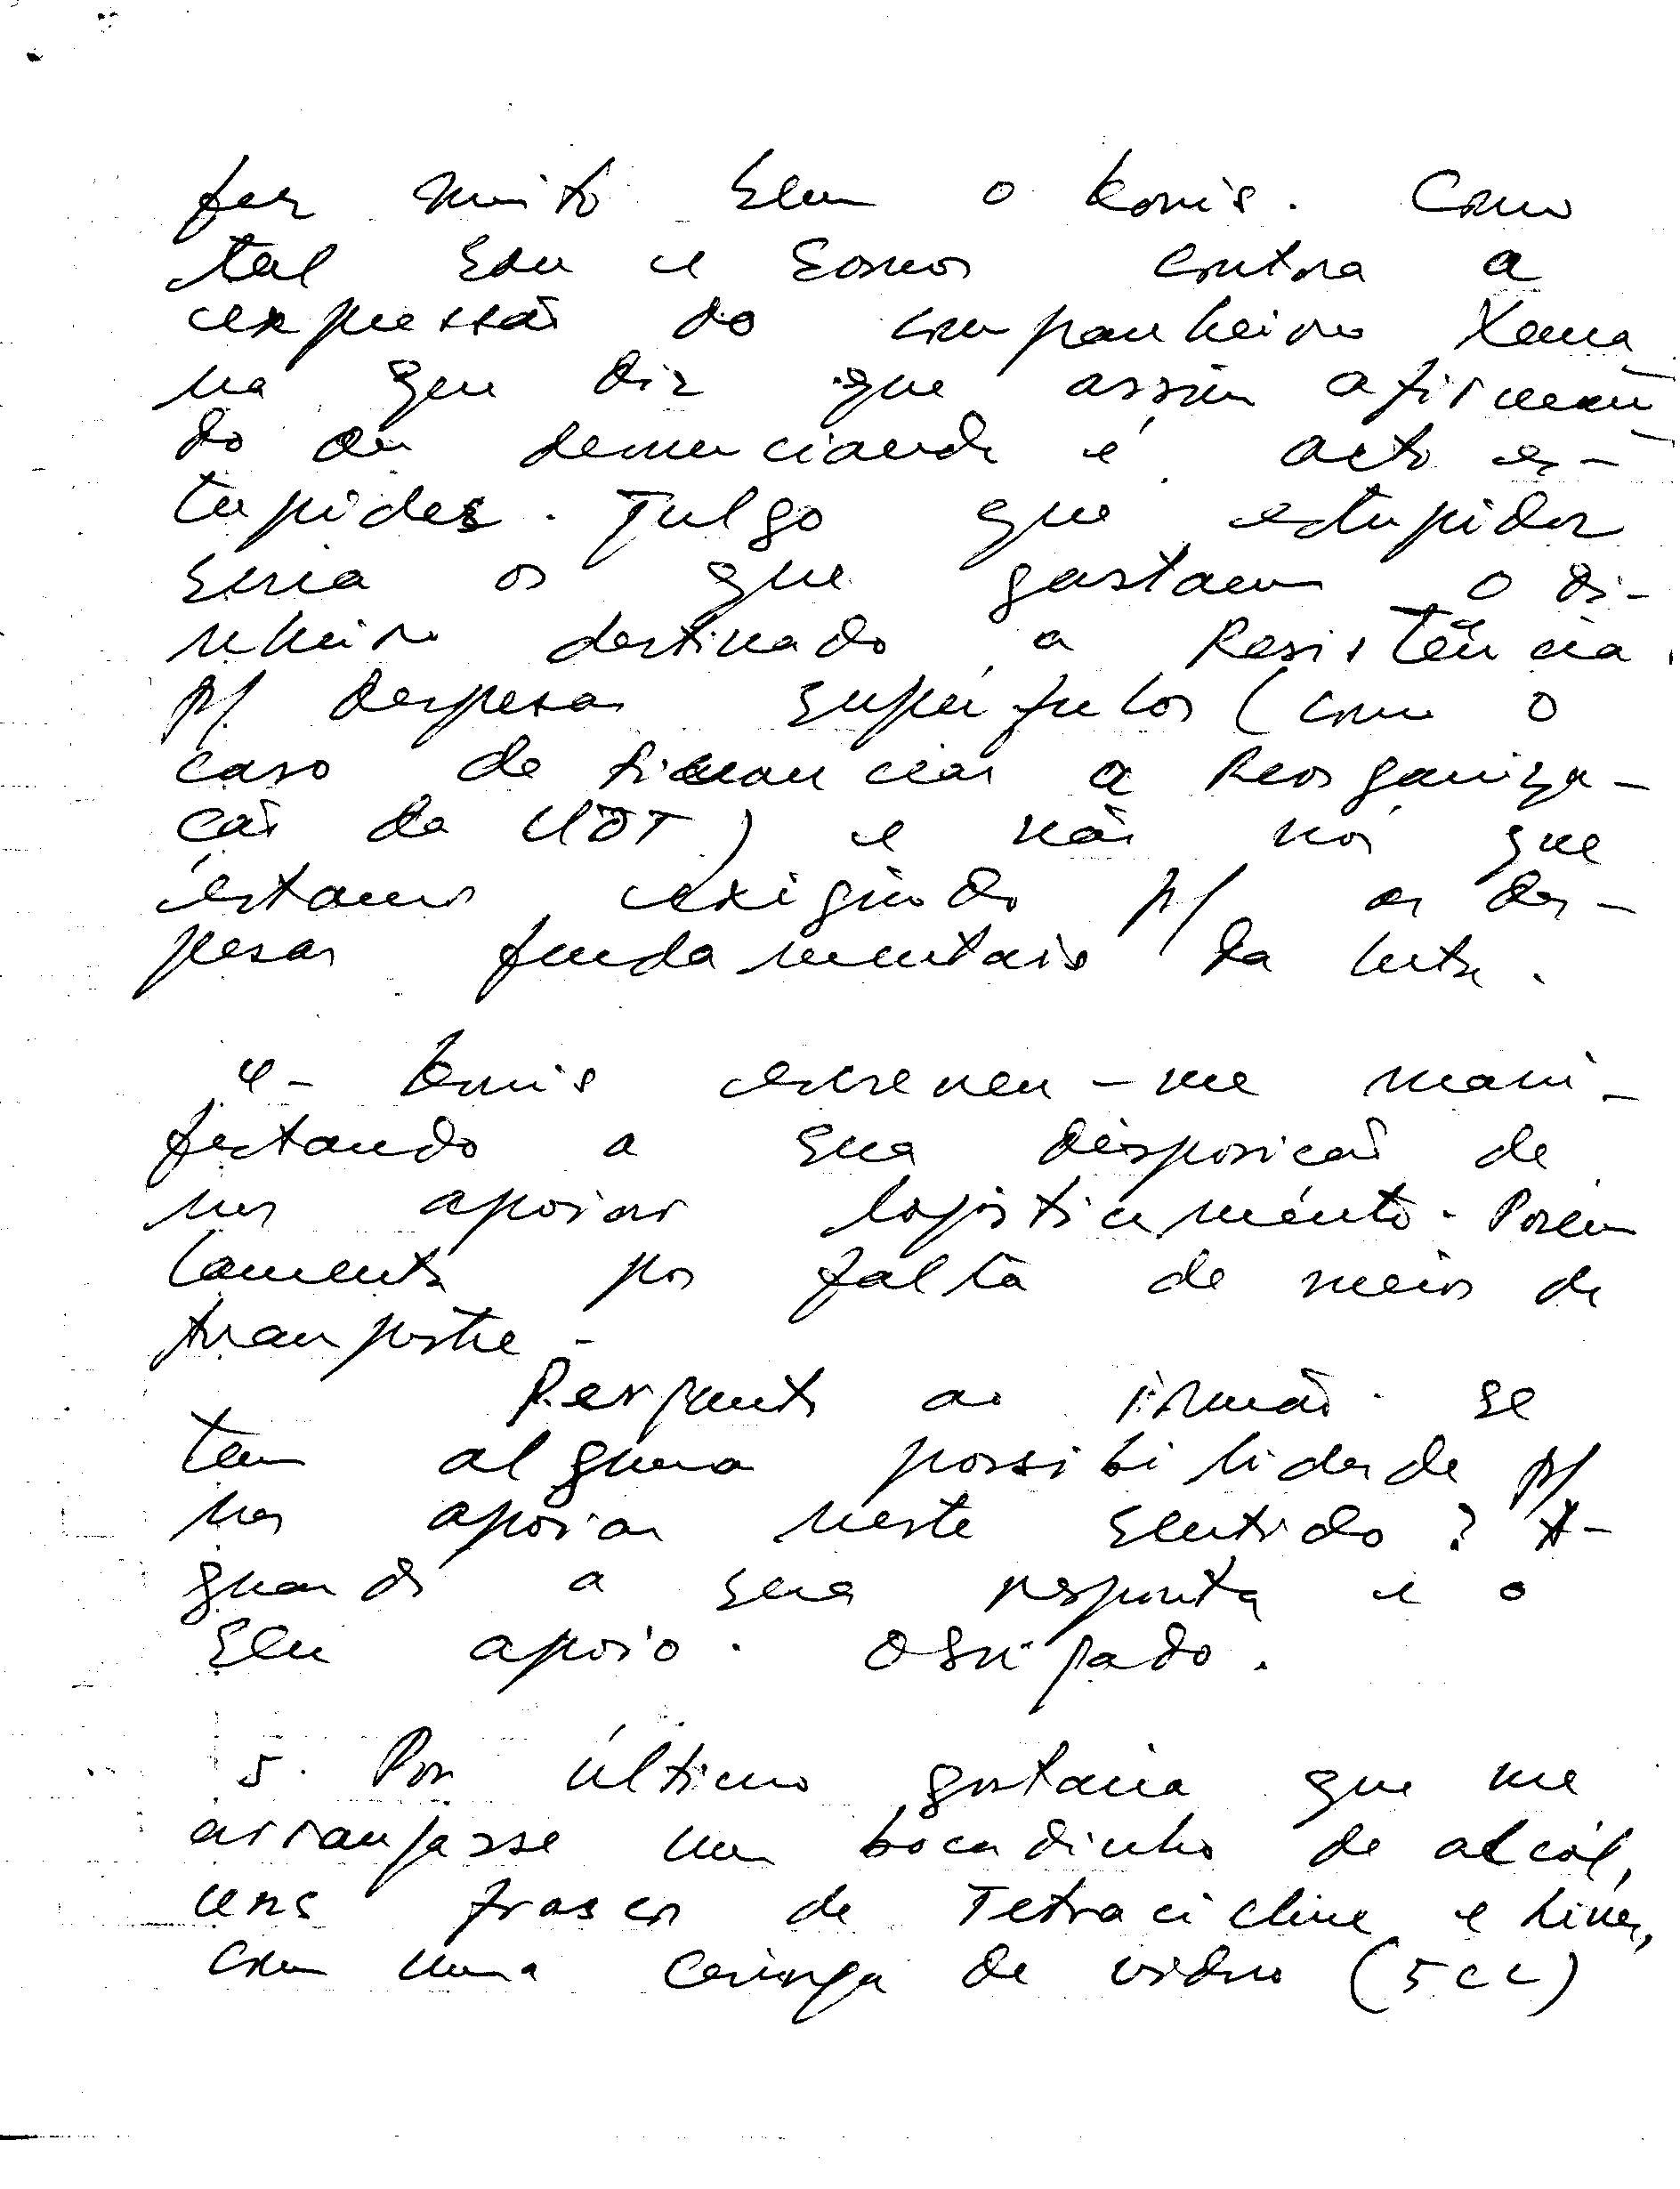 fez muito bem o Konis. Como
tal sou e somos contra a
expressão do companheiro Xana
na que diz que assim afirman
do ou denunciando é acto es-
tupidez. Julgo que estupidez
seria os que gastam o di-
nheiro destinado a Resistência
p/ despesas supérfulos (como o
caso de financiar a Reorganiza-
ção da UDT) e não nós que
estamos exigindo p/ as des-
pesas fundamentais da luta.
4- Konis escreveu-me mani-
festando a sua disposição de
nos apoiar logisticamento. Porém
lamenta por falta de meios de
transporte.
Pergunto ao irmão se
tem alguma possibilidade p/
nos apoiar neste sentido? A-
guardo a sua resposta e o
seu apoio. Obrigado.
5. Por último gostaria que me
arranjasse um bocadinho de alcól,
uns frascos de Tetracicline e
com uma ceringa de vidro (5cc)